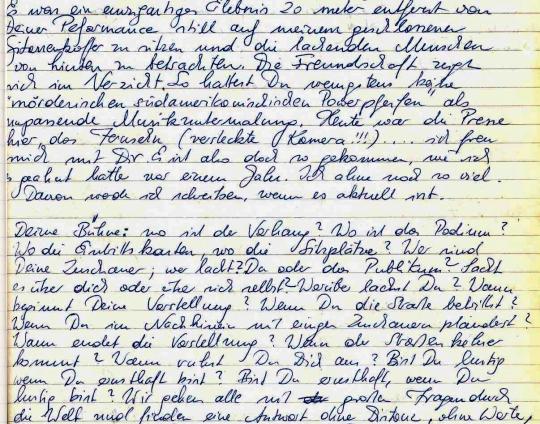 Es war ein einzigartiges Erlebnis 20 meter entfernt von
Deiner Peformance still auf meinem geschlossenen
Gitarrenkoffer zu sitzen und die lachenden Menschen
von hinten zu betrachten. Die Freundschaft zeigt
sich im Verzicht. So hattest Du wenigstens keine
mörderischen südamerikanischindischen Powerpfeifen als
unpassende Musikuntermalung. Heute war die Presse
hier, das Fernsehn (versteckte Kamera!!!).... ich freu
mich mit Dir. Es ist also doch so gekommen, wie ich
geahnt hatte vor einem Jahr. Ich ahne noch so viel.
Davon werde ich schreiben, wenn es aktuell ist.
Deine Bühne: wo ist der Vorhang? Wo ist das Podium?
Wo die Eintrittskarten, wo die Sitzplätze? Wer sind
Deine Zuschauer; wer lacht? Du oder das Publikum? Lacht
es über dich oder über sich selbst? Worüber lachst Du? Wann
beginnt Deine Vorstellung? Wenn Du die Straße betrittst?
Wenn Du im Nachhinein mit einigen Zuschauern plauderst?
Wann endet die Vorstellung? Wenn der Straßenkehrer
kommt? Wann ruhst Du Dich aus? Bist Du lustig
wenn Du ernsthaft bist? Bist Du ernsthaft, wenn Du
lustig bist? Wir gehen alle mit großen Fragen durch
die Welt und finden eine Antwort ohne Distanz, ohne Worte,